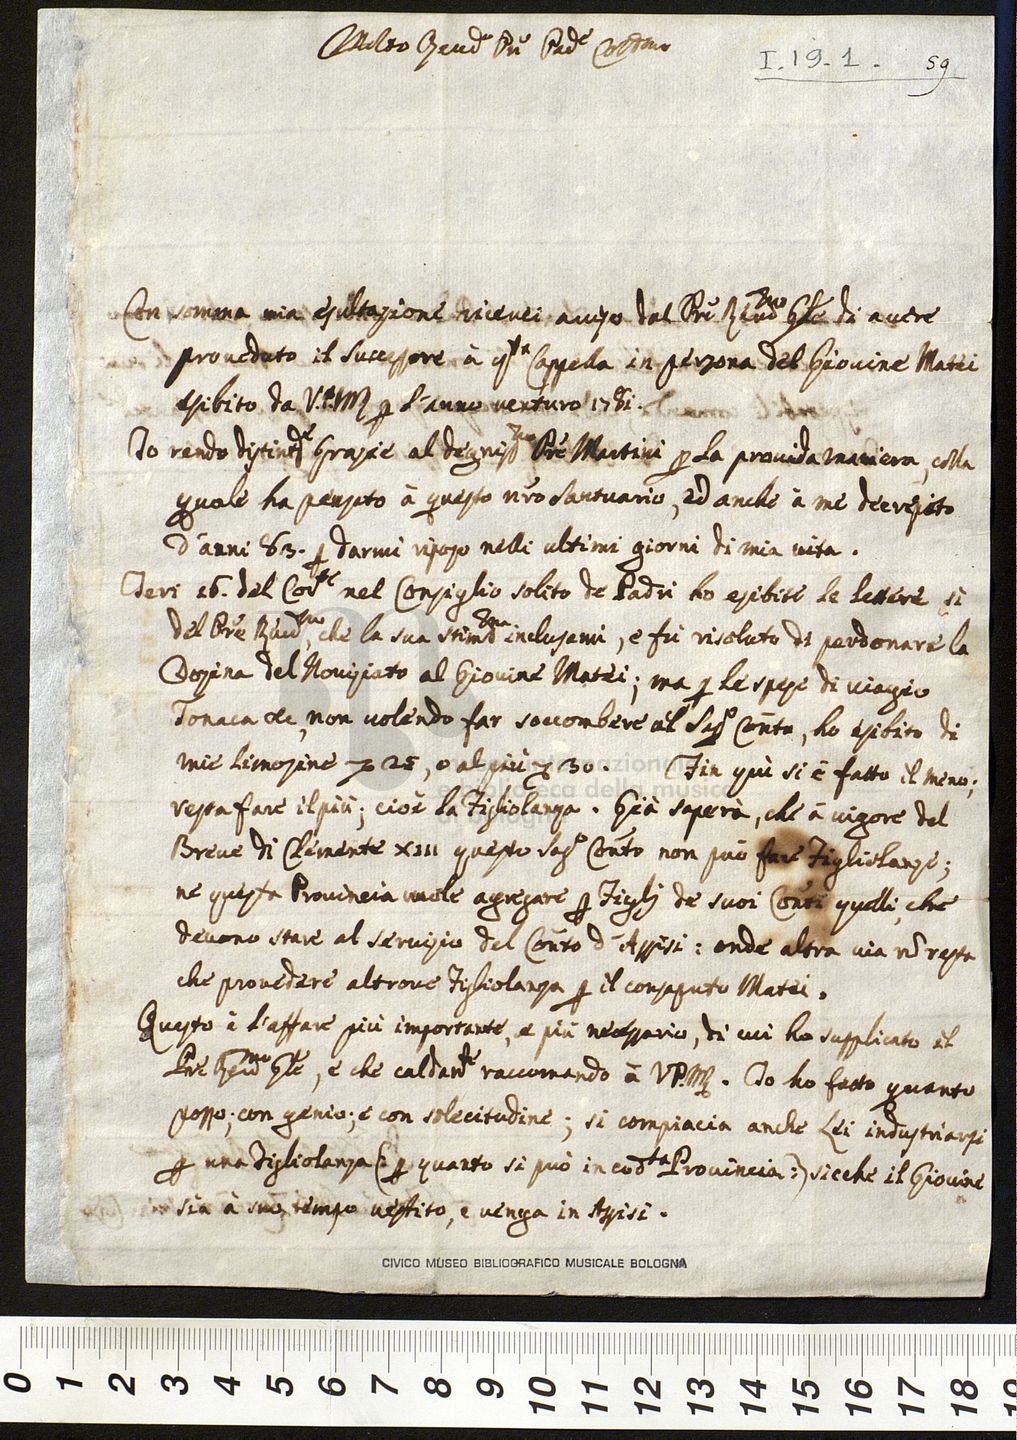 Molto Reud.e Pre Pad.e
I.19.1. 59
Con somma mia esultazione ricevei aviso dal Pre Reud.mo Gle di avere
proveduto il successore à q.sta Cappella in persona del Giovine Matei
esibito da V.P.M. p l'anno venturo
Io rendo distint.e Grazie al degniss.mo Pre Martini p la provida maniera, colla
quale ha pensato à questo nro Santuario, ed anche à me decrepito
d'anni 83. p darmi riposo nelli ultimi giorni di mia vita.
Ieri 16. del Cor.te nel Consiglio solito de Padri ho esibite le lettere si
del Pre Reud.mo, che la sua stim.ma inclusami, e fù risoluto di perdonare la
Dozina del Noviziato al Giovine Matei; ma p le spese di viagio
Tonaca &c, non volendo far soccombere al Sag.o Conto, ho esibito di
mie limosine 25, o al più 30. Fin quì si è fatto il meno;
resta fare il più; cioè la Figliolanza. Già saperà, che à vigore del
Breve di Clemente XIII questo Sag.o Conto non può fare Figliolanze;
ne questa Provincia vuole agregare p Figlj de suoi Conti quelli, che
devono stare al servizio del Conto d'Assisi: onde altra via nō resta
che provedere altrove Figliolanza p il consaputo Matei.
Questo è l'affare più importante, e più necessario, di cui ho supplicato il
Pre Reud.mo Gle, e che caldam.te raccomando à VP.M. Io ho fatto quanto
posso; con genio; e con solecitudine; si compiacia anche Lei industriarsi
p una Figliolanza (: p quanto si può in cod.ta Provincia :) sicche il Giovine
sia à suo tempo vestito, e venga in Assisi.
CIVICO MUSEO BIBLIOGRAFICO MUSICALE BOLOGNA
0 1 2 3 4 5 6 7 8 9 10 11 12 13 14 15 16 17 18 19